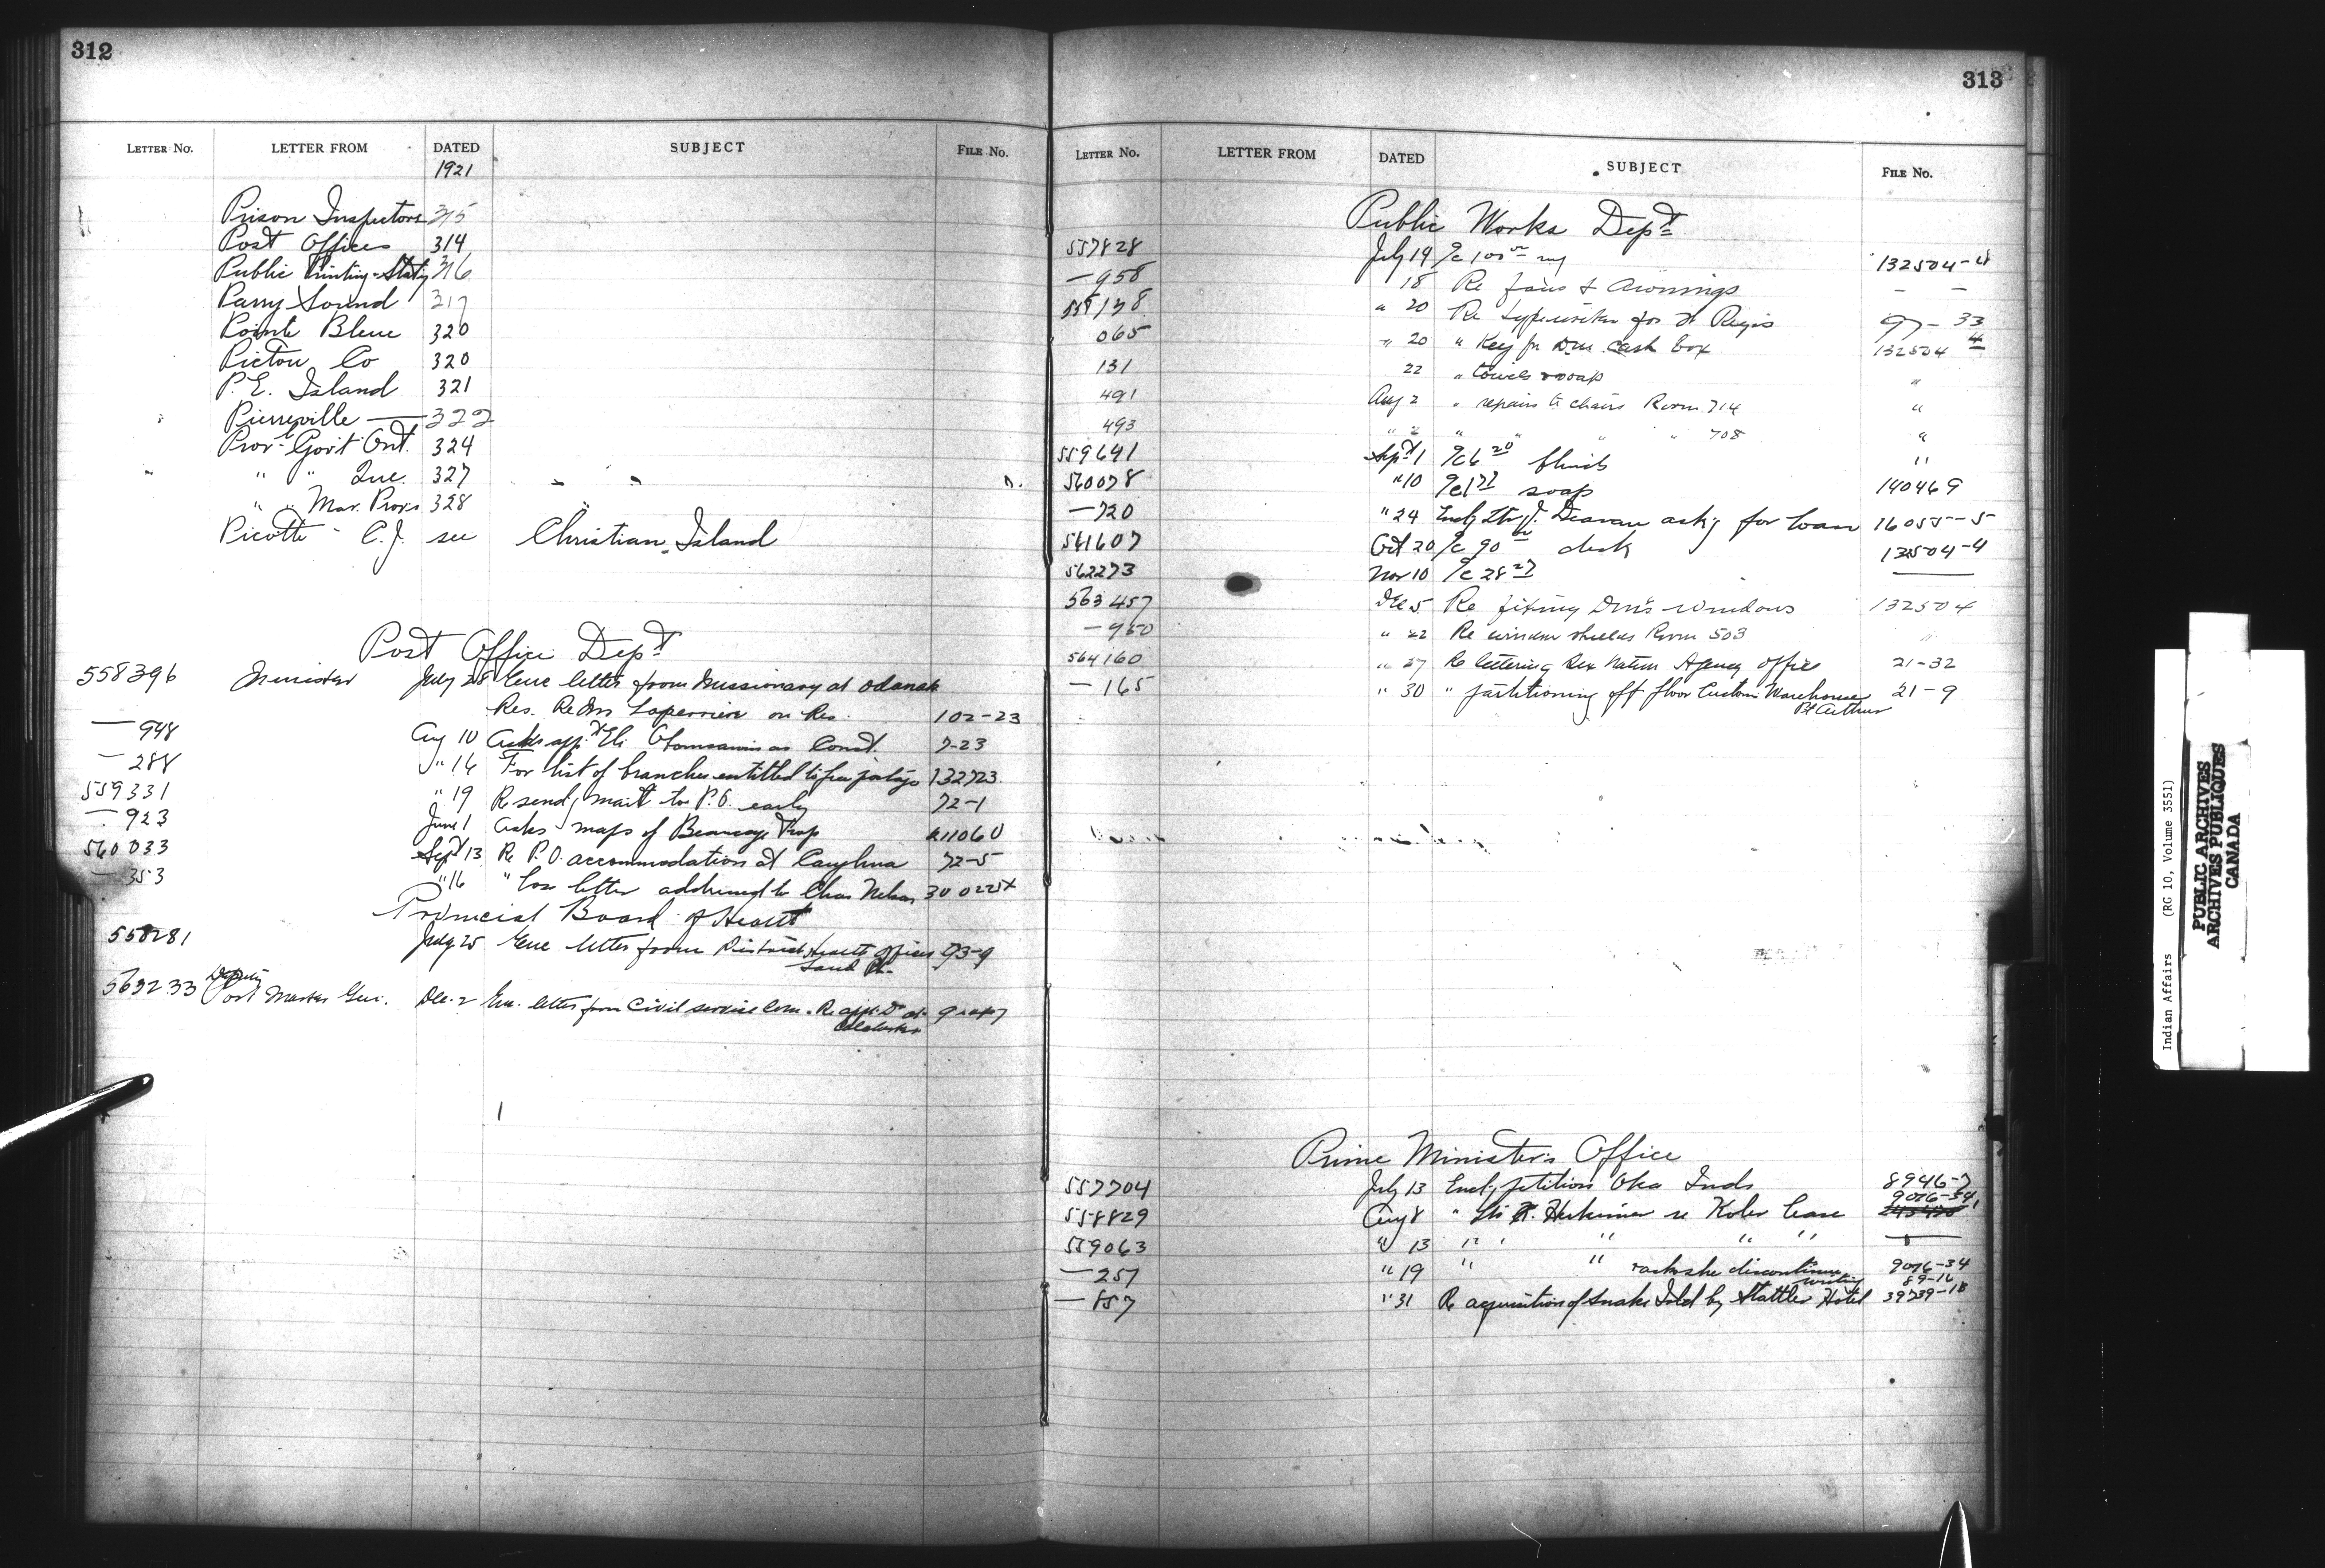 312
LETTER No. LETTER FROM DATED SUBJECT FILE No.
1921
Prison Inspectors 315
Post Offices 314
Public Printing & Staty 316
Parry Sound 317
Pointe Bleue 320
Pictou Co 320
P. E. Island 321
Pierreville — 322
Prov. Govt Ont. 324
" " Que. 327
" " Mar. Provs 328
Picotte - C. J. see Christian Island
Post Office Dept
558396 Minister July 28 Enc letter from Missionary at Odanak
Res. Re on Res. 102-23
— 948 Aug 10 Asks app't Eli as Const. 7-23
— 288 " 16 For list of branches entitled to free postage 132723
559331 " 19 Re send'g mail to P.O. early 72-1
— 923 June 1 Asks maps of Beaucage Prop 411060
560033 Sept 13 Re P.O. accommodation at 72-5
— 353 " 16 " Lose letter addressed to Chas Nelson
Provincial Board of Health
558281 July 25 Enc letter from District Health Officer 93-9
563233 Deputy Post Master Gen. Dec. 2 Enc. letter from Civil Service Com. Re app't Dr at
313
LETTER No. LETTER FROM DATED SUBJECT FILE No.
Public Works Dept
557828 July 19 132504-4
— 958 18 Re fans & Awnings — —
558138 " 20 Re typewriter for St Regis 97-33
065 " 20 " Key for D.M. Cash box 132504-4
131 22 " towels soap "
491 Aug 2 " repairs to chairs Room 714 "
493 " 2 " " " " 708 "
559641 Sept 1 blinds "
560078 " 10 soap 140469
— 720 " 24 Encl'g ltr J. ask'g for loan 16055-5
561607 Oct 20 desk 13504-4
562273 Nov 10 —
563457 Dec 5 Re fixing Dm's windows 132504
— 950 " 22 Re window shields Room 503 "
564160 " 27 Re lettering Six Nation Agency office 21-32
— 165 " 30 " partitioning off floor Customs Warehouse 21-9
Pt Arthur
Prime Minister's Office
557704 July 13 Encl'g petition Oka Inds 8946-7
9026-34
558829 Aug 8 " ltr Herkimer re Koler lease
559063 " 13 " " " " "
— 257 " 19 " " & asks she discontinue 9026-34
writing 89-16
— 857 " 31 Re acquisition of Snake Isld by Stattler Hotel 39739-18
Indian Affairs (RG 10, Volume 3551)
PUBLIC ARCHIVES
ARCHIVES PUBLIQUES
CANADA